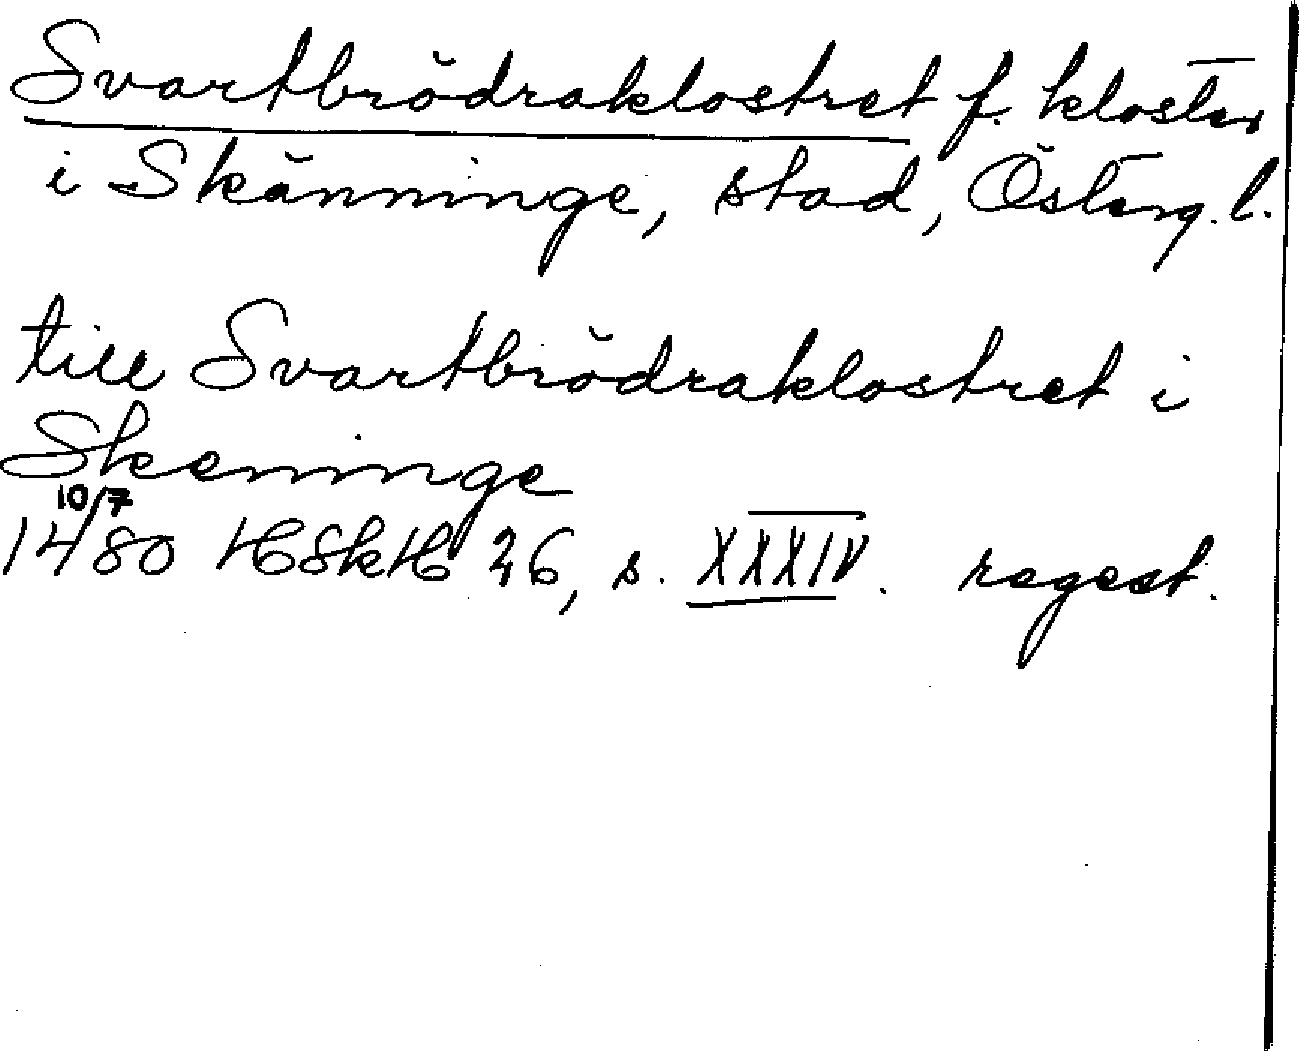 Svartbrödraklostret f. kloster
i Skänninge, stad, Österg. l.
till Svartbrödraklostret i
Skeninge
10/7
1480 HSkH 26, s. XXXIV. regest.